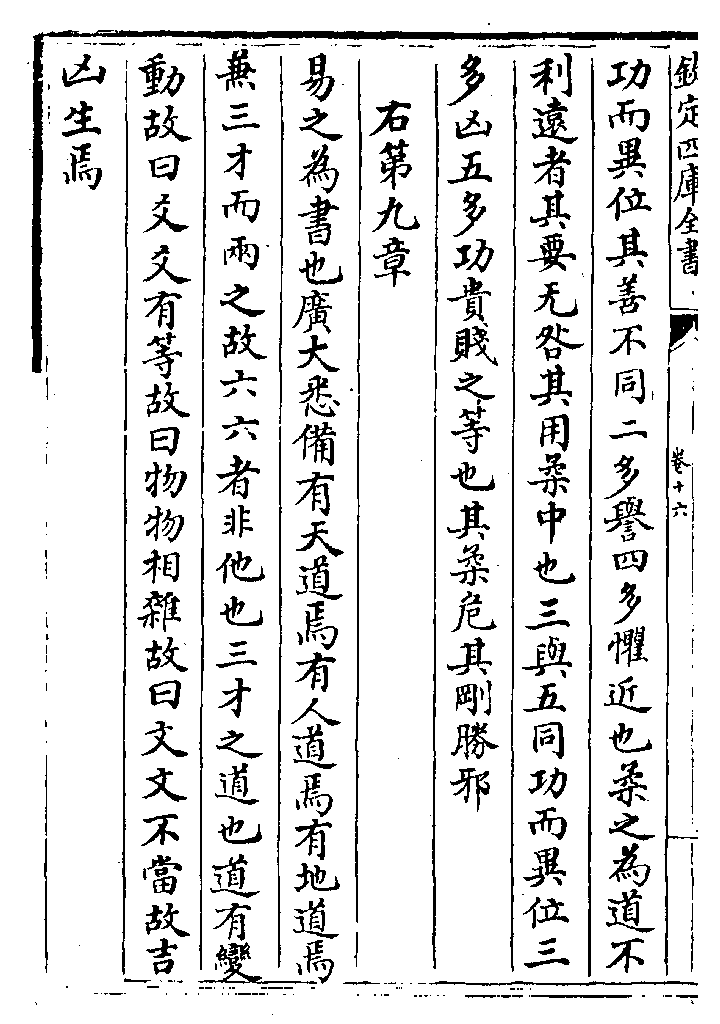 欽定四庫全書
卷十六
功而異位其善不同二多譽四多懼近也柔之為道不
利遠者其要无咎其用柔中也三與五同功而異位三
多凶五多功貴賤之等也其柔危其剛勝邪
右第九章
易之為書也廣大悉備有天道焉有人道焉有地道焉
兼三才而兩之故六六者非他也三才之道也道有變
動故曰爻爻有等故曰物物相雜故曰文文不當故吉
凶生焉